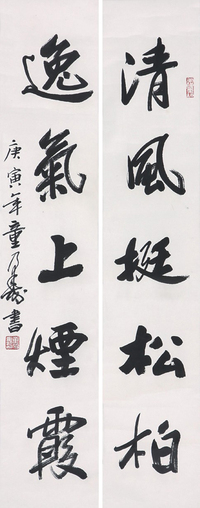 清風挺松柏
逸氣上煙霞
庚寅年童乃壽書